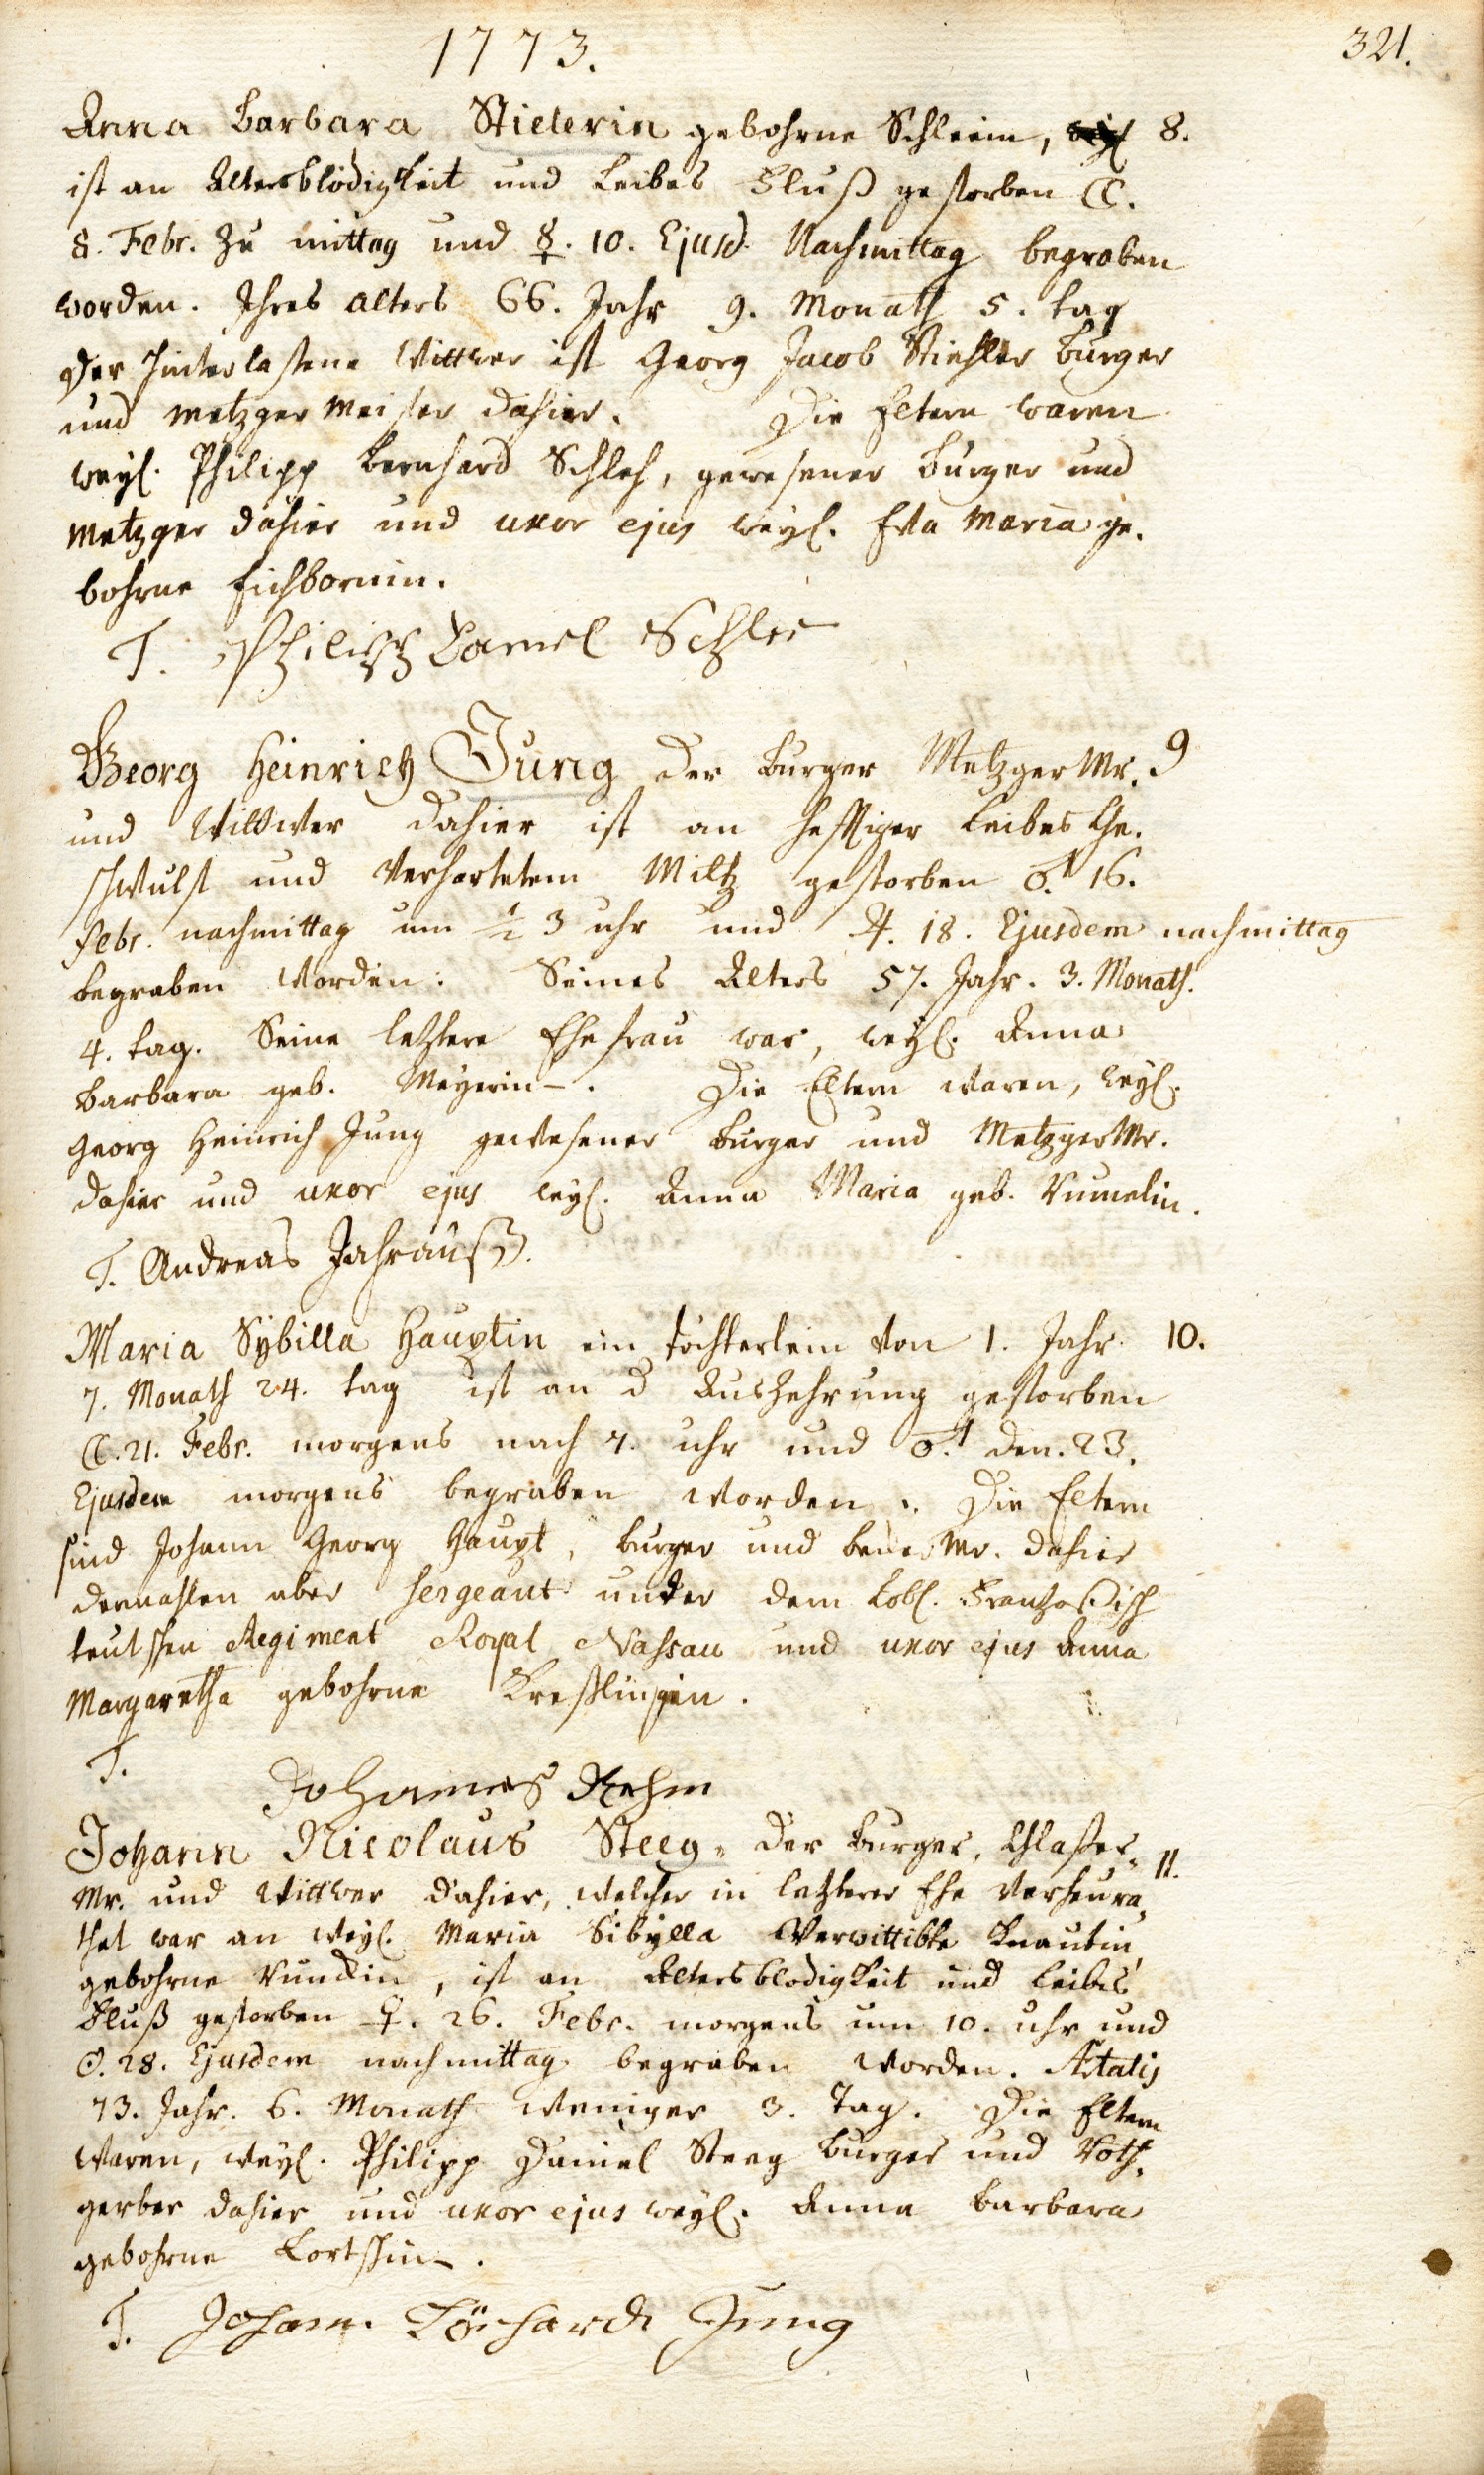 1773.
321.
Anna Barbara Stielerin gebohrne Schleein, 8.
ist an Altersblödigkeit und Leibes Fluß gestorben ☾.
8. Febr. zu mittag und ☿. 10. Ejusd. Nachmittag begraben
worden. Ihres alters 66. Jahr 9. Monath 5. tag
Der hinterlaßene Wittwer ist Georg Jacob Stiehler burger
und metzger meister dahier. Die Eltern waren
weyl. Philipp bernhard Schleh, gewesener burger und
metzger dahier und uxor ejus weyl. Eva Maria ge-
bohrne Eichbornin.
T. Philipp Daniel Schlee
Georg Heinrich Jung der burger Metzger Mr. 9
und Wittwer dahier ist an hefftiger Leibes Ge-
schwulst und Verhartetem Miltz gestorben ♂. 16.
febr. nachmittag um ½ 3 uhr und ♃. 18. Ejusdem nachmittag
begraben worden. Seines Alters 57. Jahr. 3. Monath.
4. tag. Seine letztere Ehefrau war, weyl. Anna
barbara geb. Meyerin. Die Eltern waren, weyl.
Georg Heinrich Jung gewesener burger und Metzger Mr.
dahier und uxor ejus weyl. Anna Maria geb.
T. Andreas Jahrauß.
Maria Sybilla Hauptin ein töchterlein von 1. Jahr. 10.
7. Monath 24. tag ist an d Auszehrung gestorben
☾. 21. Febr. morgens nach 7. uhr und ♂. den. 23.
Ejusdem morgens begraben worden. Die Eltern
sind Johann Georg Haupt, burger und Mr. dahier
dermahlen aber sergeant unter dem Lobl. Frantzosisch
teutschen Regiment Royal Nassau und uxor ejus Anna
Margaretha gebohrne
T. Johannes Rehm
Johann Nicolaus Steeg, der burger, Glaßer- 11.
Mr. und Wittwer dahier, welcher in letzterer Ehe verheura-
thet war an weyl. Maria Sibylla Verwittibte Knautin,
gebohrne, ist an Altersblödigkeit und Leibes
Fluß gestorben ♀. 26. Febr. morgens um 10. uhr und
☉. 28. Ejusdem nachmittag begraben worden. Ætatis
73. Jahr. 6. Monath weniger 3. Tag. Die Eltern
waren, weyl. Philipp Daniel Steeg burger und Roth-
gerber dahier und uxor ejus weyl. Anna barbara
gebohrne
T. Johann Jung